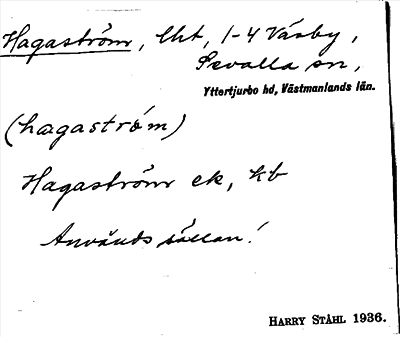 Hagaström, lht, 1-4 Väsby,
Sevalla sn,
Yttertjurbo hd, Västmanlands län.
(hagaström)
Hagaström ek, kb
Används sällan!
HARRY STÅHL 1936.